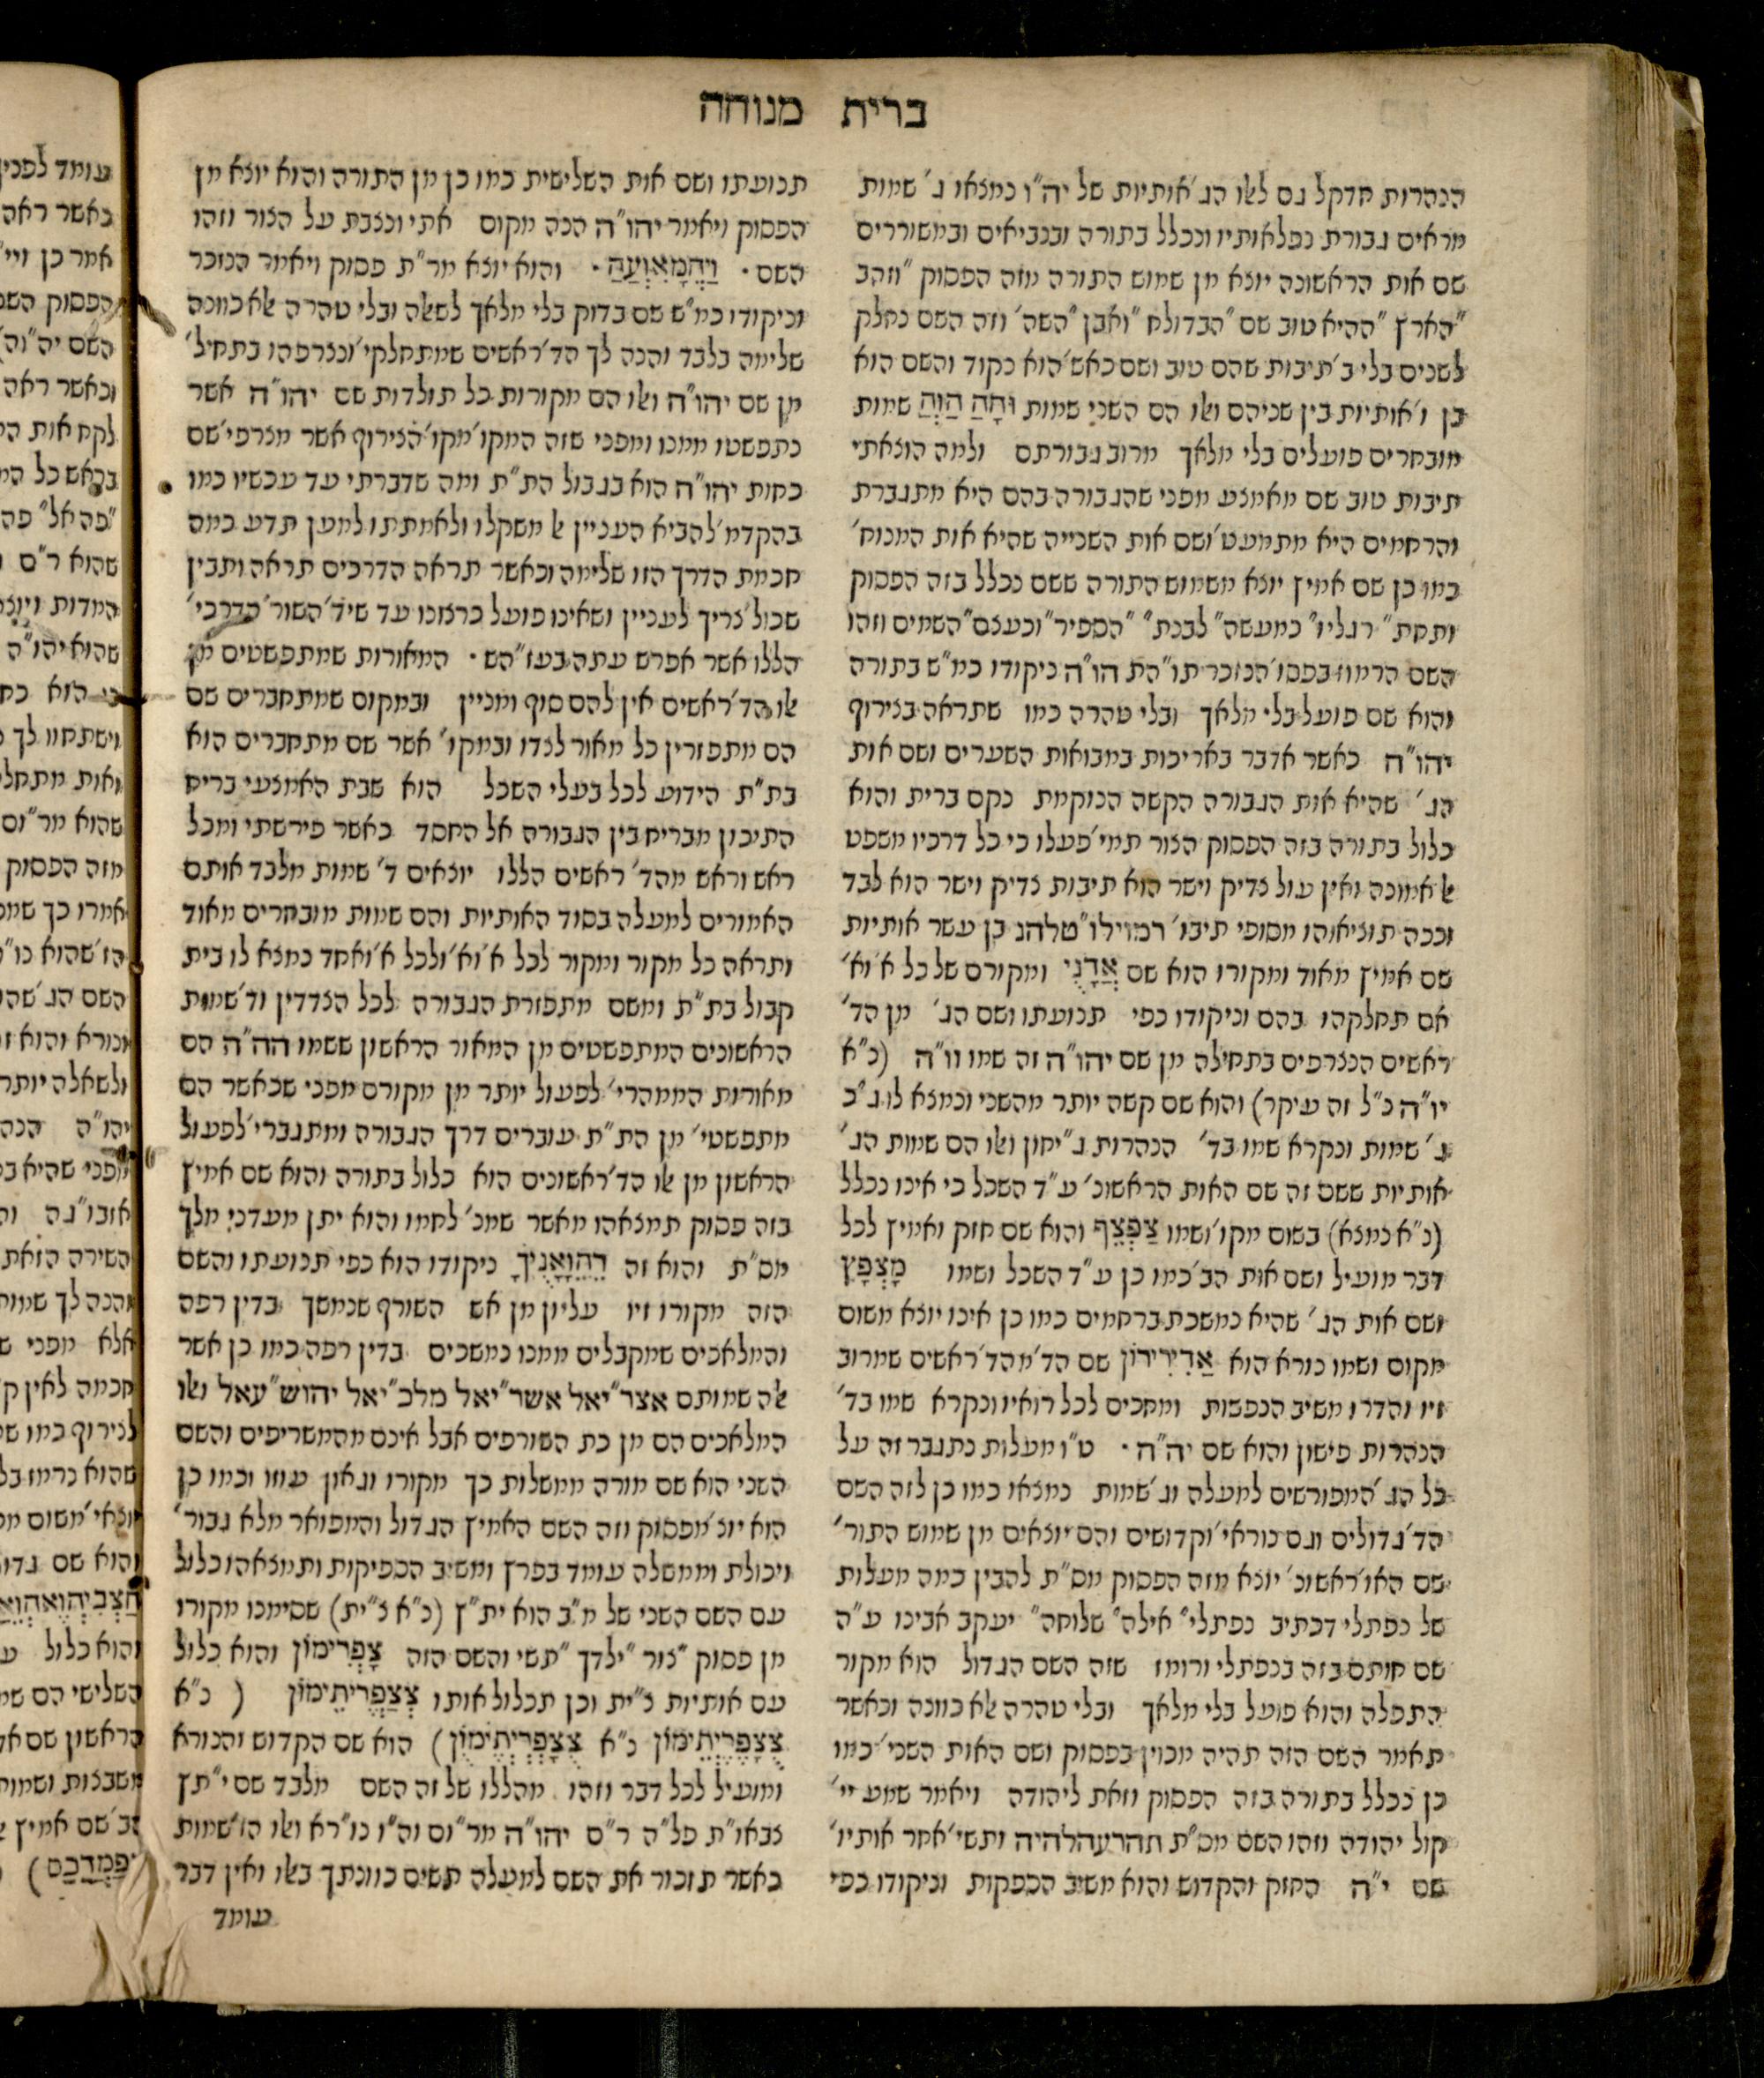 ברית מנוחה
הנהרות חדקל גם לאלו הג׳ אותיות של יה״ו נמצאו ג׳ שמות
מראים גבורת נפלאותיו ונכלל בתורה ובנביאים ובמשוררים
שם אות הראשונה יוצא מן שמוש התורה מזה הפסוק ״וזהב
״הארץ ״ההיא טוב שם ״הבדולח ״ואבן ״השה׳ וזה השם נחלק
לשנים בלי ב׳ תיבות שהם טוב ושם כאש׳ הוא נקוד והשם הוא
בן ו׳ אותיות בין שניהם ואלו הם השני שמות וּהָהַ הַוְהַ שמות
מובחרים פועלים בלי מלאך מרוב גבורתם ולמה הוצאתי
תיבות טוב שם מאמצע מפני שהגבורה בהם היא מתגברת
והרחמים היא מתמעט׳ ושם אות השנייה שהיא אות המנוח׳
כמו כן שם אמיץ יוצא משמוש התורה ששם נכלל בזה הפסוק
ותחת״ רגליו״ כמעשה״ לבנת״ ״הספיר״ וכעצם״ השמים וזהו
השם הרמוז בפסו׳ הנזכר תו״הת הו״ה ניקודו כמ״ש בתורה
והוא שם פועל בלי מלאך ובלי טהרה כמו שתראה בצירוף
יהו״ה כאשר אדבר באריכות במבואות השערים ושם אות
הג׳ שהיא אות הגבורה הקשה הנוקמת נקם ברית והוא
כלול בתורה בזה הפסוק הצור תמי׳ פעלו כי כל דרכיו משפט
אל אמונה ואין עול צדיק וישר הוא תיבות צדיק וישר הוא לבד
וככה תוציאוהו מסופי תיבו׳ רמוילו״טלהנ בן עשר אותיות
שם אמיץ מאוד ומקורו הוא שם אֲדָנֻי ומקורם של כל א׳ וא׳
אם תחלקהו בהם וניקודו כפי תנועתו ושם הג׳ מן הד׳
ראשים הנצרפים בתחילה מן שם יהו״ה זה שמו וו״ה (נ״א
יו״ה נ״ל זה עיקר) והוא שם קשה יותר מהשני ונמצא לו ג״כ
ג׳ שמות ונקרא שמו בד׳ הנהרות ג״יחון ואלו הם שמות הג׳
אותיות ששם זה שם האות הראשונ׳ ע״ד השכל כי אינו נכלל
(נ״א נמצא) בשום מקו׳ ושמו צַפְצֵף והוא שם חזק ואמיץ לכל
דבר מועיל ושם אות הב׳ כמו כן ע״ד השכל ושמו מָצְפָץ
ושם אות הג׳ שהיא נמשכת ברחמים כמו כן אינו יוצא משום
מקום ושמו נורא הוא אַדִירִירוֹן שם הד׳ מהד׳ ראשים שמרוב
זיו והדרו משיב הנפשות ומחכים לכל רואיו ונקרא שמו בד׳
הנהרות פישון והוא שם יה״ה. ט״ו מעלות נתגבר זה על
כל הג׳ המפורשים למעלה וג׳ שמות נמצאו כמו כן לזה השם
הד׳ גדולים וגם נוראי׳ וקדושים והם יוצאים מן שמוש התור׳
שם האו׳ ראשונ׳ יוצא מזה הפסוק מס״ת להבין כמה מעלות
של נפתלי דכתיב נפתלי״ אילה״ שלוחה״ יעקב אבינו ע״ה
שם חותם בזה בנפתלי ורומז שזה השם הגדול הוא מקור
התפלה והוא פועל בלי מלאך ובלי טהרה אלא כוונה וכאשר
תאמר השם הזה תהיה מכוין בפסוק ושם האות השני׳ כמו
כן נכלל בתורה בזה הפסוק וזאת ליהודה ויאמר שמע יי׳
קול יהודה וזהו השם מס״ת תהרעהלהיה ותשי׳ אחר אותיו׳
שם י״ה החזק והקדוש והוא משיב הספקות וניקודו כפי
תנועתו ושם אות השלישית כמו כן מן התורה והוא יוצא מן
הפסוק ויאמר יהו״ה הנה מקום אתי ונצבת על הצור וזהו
השם. וַיְהֲמָאִוְעַהַ. והוא יוצא מר״ת פסוק ויאמר הנזכר
וניקודו כמ״ש שם בדוק בלי מלאך לאלה ובלי טהרה אלא כוונה
שלימה בלבד והנה לך הד׳ ראשים שמתחלקי׳ ונצרפהו בתחיל׳
מן שם יהו״ה ואלו הם מקורות כל תולדות שם יהו״ה אשר
נתפשטו ממנו ומפני שזה המקו׳ מקו׳ הצירוף אשר מצרפי׳ שם
כחות יהו״ה הוא בגבול הת״ת ומה שדברתי עד עכשיו כמו
בהקדמ׳ להביא העניין אל משקלו ולאמתתו למען תדע כמה
חכמת הדרך הזו שלימה וכאשר תראה הדרכים תראה ותבין
שכול׳ צריך לעניין ושאינו פועל כרצונו עד שיד׳ השור׳ הדרכי׳
הללו אשר אפרש עתה בעז״הש. המאורות שמתפשטים מן
אלו הד׳ ראשים אין להם סוף ומניין ובמקום שמתחברים שם
הם מתפזרין כל מאור לצדו ובמקו׳ אשר שם מתחברים הוא
בת״ת הידוע לכל בעלי השכל הוא שבת האמצעי בריח
התיכון מבריח בין הגבורה אל החסד כאשר פירשתי ומכל
ראש וראש מהד׳ ראשים הללו יוצאים ד׳ שמות מלבד אותם
האמורים למעלה בסוד האותיות והם שמות מובחרים מאוד
ותראה כל מקור ומקור לכל א׳ וא׳ ולכל א׳ ואחד נמצא לו בית
קבול בת״ת ומשם מתפזרת הגבורה לכל הצדדין וד׳ שמות
הראשונים המתפשטים מן המאור הראשון ששמו הה״ה הם
מאורות הממהרי׳ לפעול יותר מן מקורם מפני שכאשר הם
מתפשטי׳ מן הת״ת עוברים דרך הגבורה ומתגברי׳ לפעול
הראשון מן אלו הד׳ ראשונים הוא כלול בתורה והוא שם אמיץ
בזה פסוק תמצאהו מאשר שמנ׳ לחמו והוא יתן מעדני מלך
מס״ת והוא זה רֵהֵוָאָנְיךָ ניקודו הוא כפי תנועתו והשם
הזה מקורו זיו עליון מן אש השורף שנמשך בדין רפה
והמלאכים שמקבלים ממנו נמשכים בדין רפה כמו כן אשר
אלה שמותם אצר״יאל אשר״יאל מלכ״יאל יהוש״עאל ואלו
המלאכים הם מן כת השורפים אבל אינם מהמשריפים והשם
השני הוא שם מורה ממשלות כך מקורו וגאון עוזו וכמו כן
הוא יוצ׳ מפסוק וזה השם האמיץ הגדול והמפואר מלא גבור׳
ויכולת וממשלה עומד בפרץ ומשיב הספיקות ותמצאהו כלול
עם השם השני של מ״ב הוא ית״ץ (נ״א צ״ית) שסימנו מקורו
מן פסוק ״צור ״ילדך ״תשי והשם הזה צָפְרִימוֹן והוא כלול
עם אותיות צ״ית וכן תכלול אותו צְצַפְרֶיתֵימוֹן ( נ״א
צֻצָפֶרְיְתֵימוֹן נ״א צֻצָפְרְיְתֶימוֻן) הוא שם הקדוש והנורא
ומועיל לכל דבר וזהו מהללו של זה השם מלבד שם י״תץ
צבאו״ת פל״ה ר״ם יהו״ה מר״ום וה״ו נו״רא ואלו הו׳ שמות
כאשר תזכור את השם למעלה תשים כוונתך באלו ואין דבר
עומד